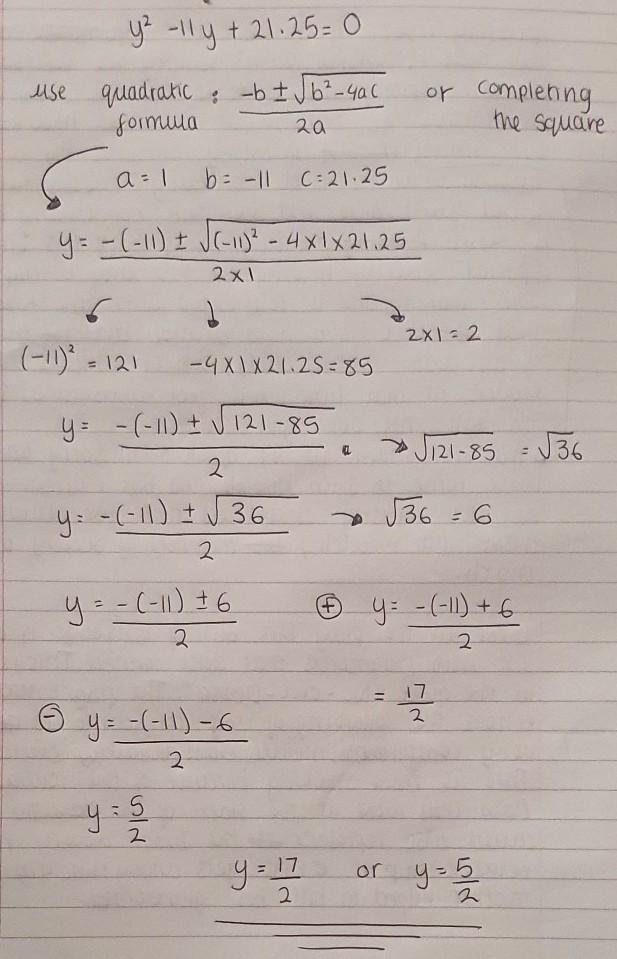 y² -11y + 21.25 = 0
use quadratic formula : (-b ± √(b² - 4ac)) / 2a or completing the square
a = 1 b = -11 c = 21.25
y = (-(-11) ± √((-11)² - 4 x 1 x 21.25)) / (2 x 1)
(-11)² = 121 -4 x 1 x 21.25 = 85 2 x 1 = 2
y = (-(-11) ± √(121 - 85)) / 2 → √(121 - 85) = √36
y = (-(-11) ± √36) / 2 → √36 = 6
y = (-(-11) ± 6) / 2 ⊕ y = (-(-11) + 6) / 2
= 17/2
⊖ y = (-(-11) - 6) / 2
y = 5/2
y = 17/2 or y = 5/2